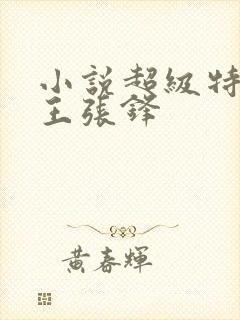 小說超級特
王張鋒
黃春輝